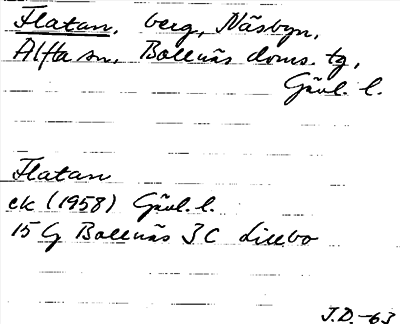 Flatan, berg, Näsbyn,
Alfta sn, Bollnäs doms. tg,
Gävl. l.
Flatan
ek (1958) Gävl. l.
15 G Bollnäs 3C Lillbo
J.D. -63